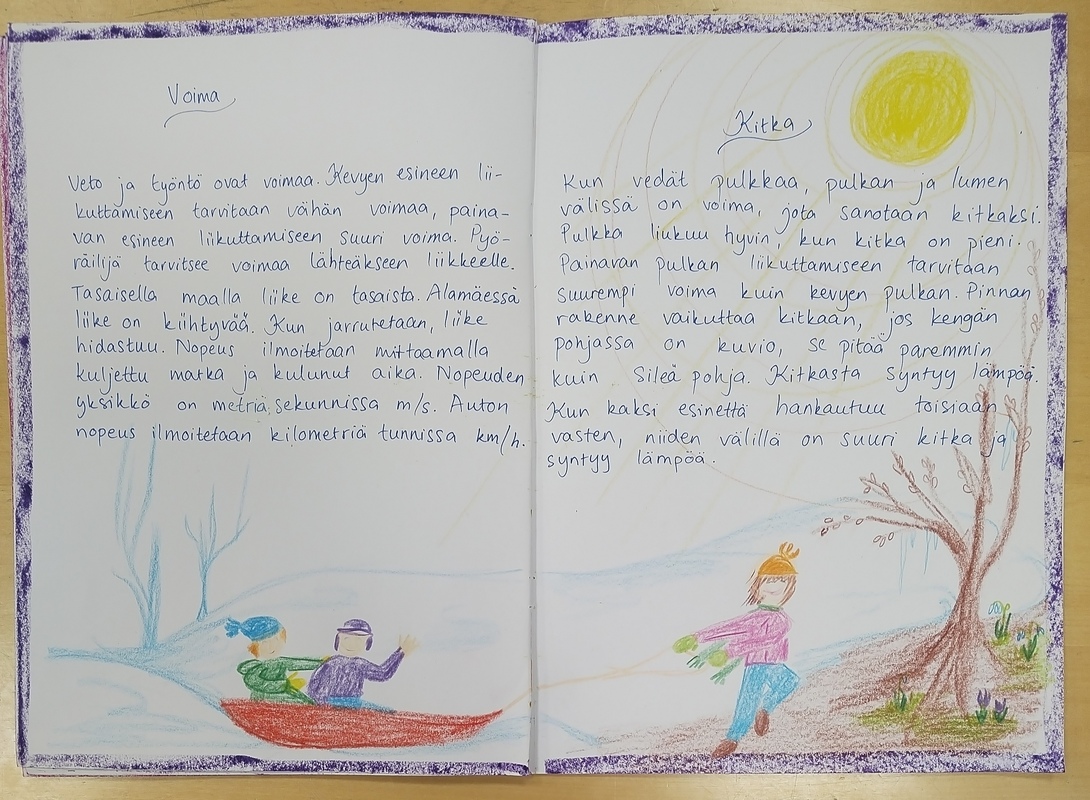 Voima
Veto ja työntö ovat voimaa. Kevyen esineen lii-
kuttamiseen tarvitaan vähän voimaa, paina-
van esineen liikuttamiseen suuri voima. Pyö-
räilijä tarvitsee voimaa lähteäkseen liikkeelle.
Tasaisella maalla liike on tasaista. Alamäessä
liike on kiihtyvää. Kun jarrutetaan, liike
hidastuu. Nopeus ilmoitetaan mittaamalla
kuljettu matka ja kulunut aika. Nopeuden
yksikkö on metriä sekunnissa m/s. Auton
nopeus ilmoitetaan kilometriä tunnissa km/h.
Kitka
Kun vedät pulkkaa, pulkan ja lumen
välissä on voima, jota sanotaan kitkaksi.
Pulkka liukuu hyvin, kun kitka on pieni.
Painavan pulkan liikuttamiseen tarvitaan
suurempi voima kuin kevyen pulkan. Pinnan
rakenne vaikuttaa kitkaan, jos kengän
pohjassa on kuvio, se pitää paremmin
kuin sileä pohja. Kitkasta syntyy lämpöä.
Kun kaksi esinettä hankautuu toisiaan
vasten, niiden välillä on suuri kitka ja
syntyy lämpöä.